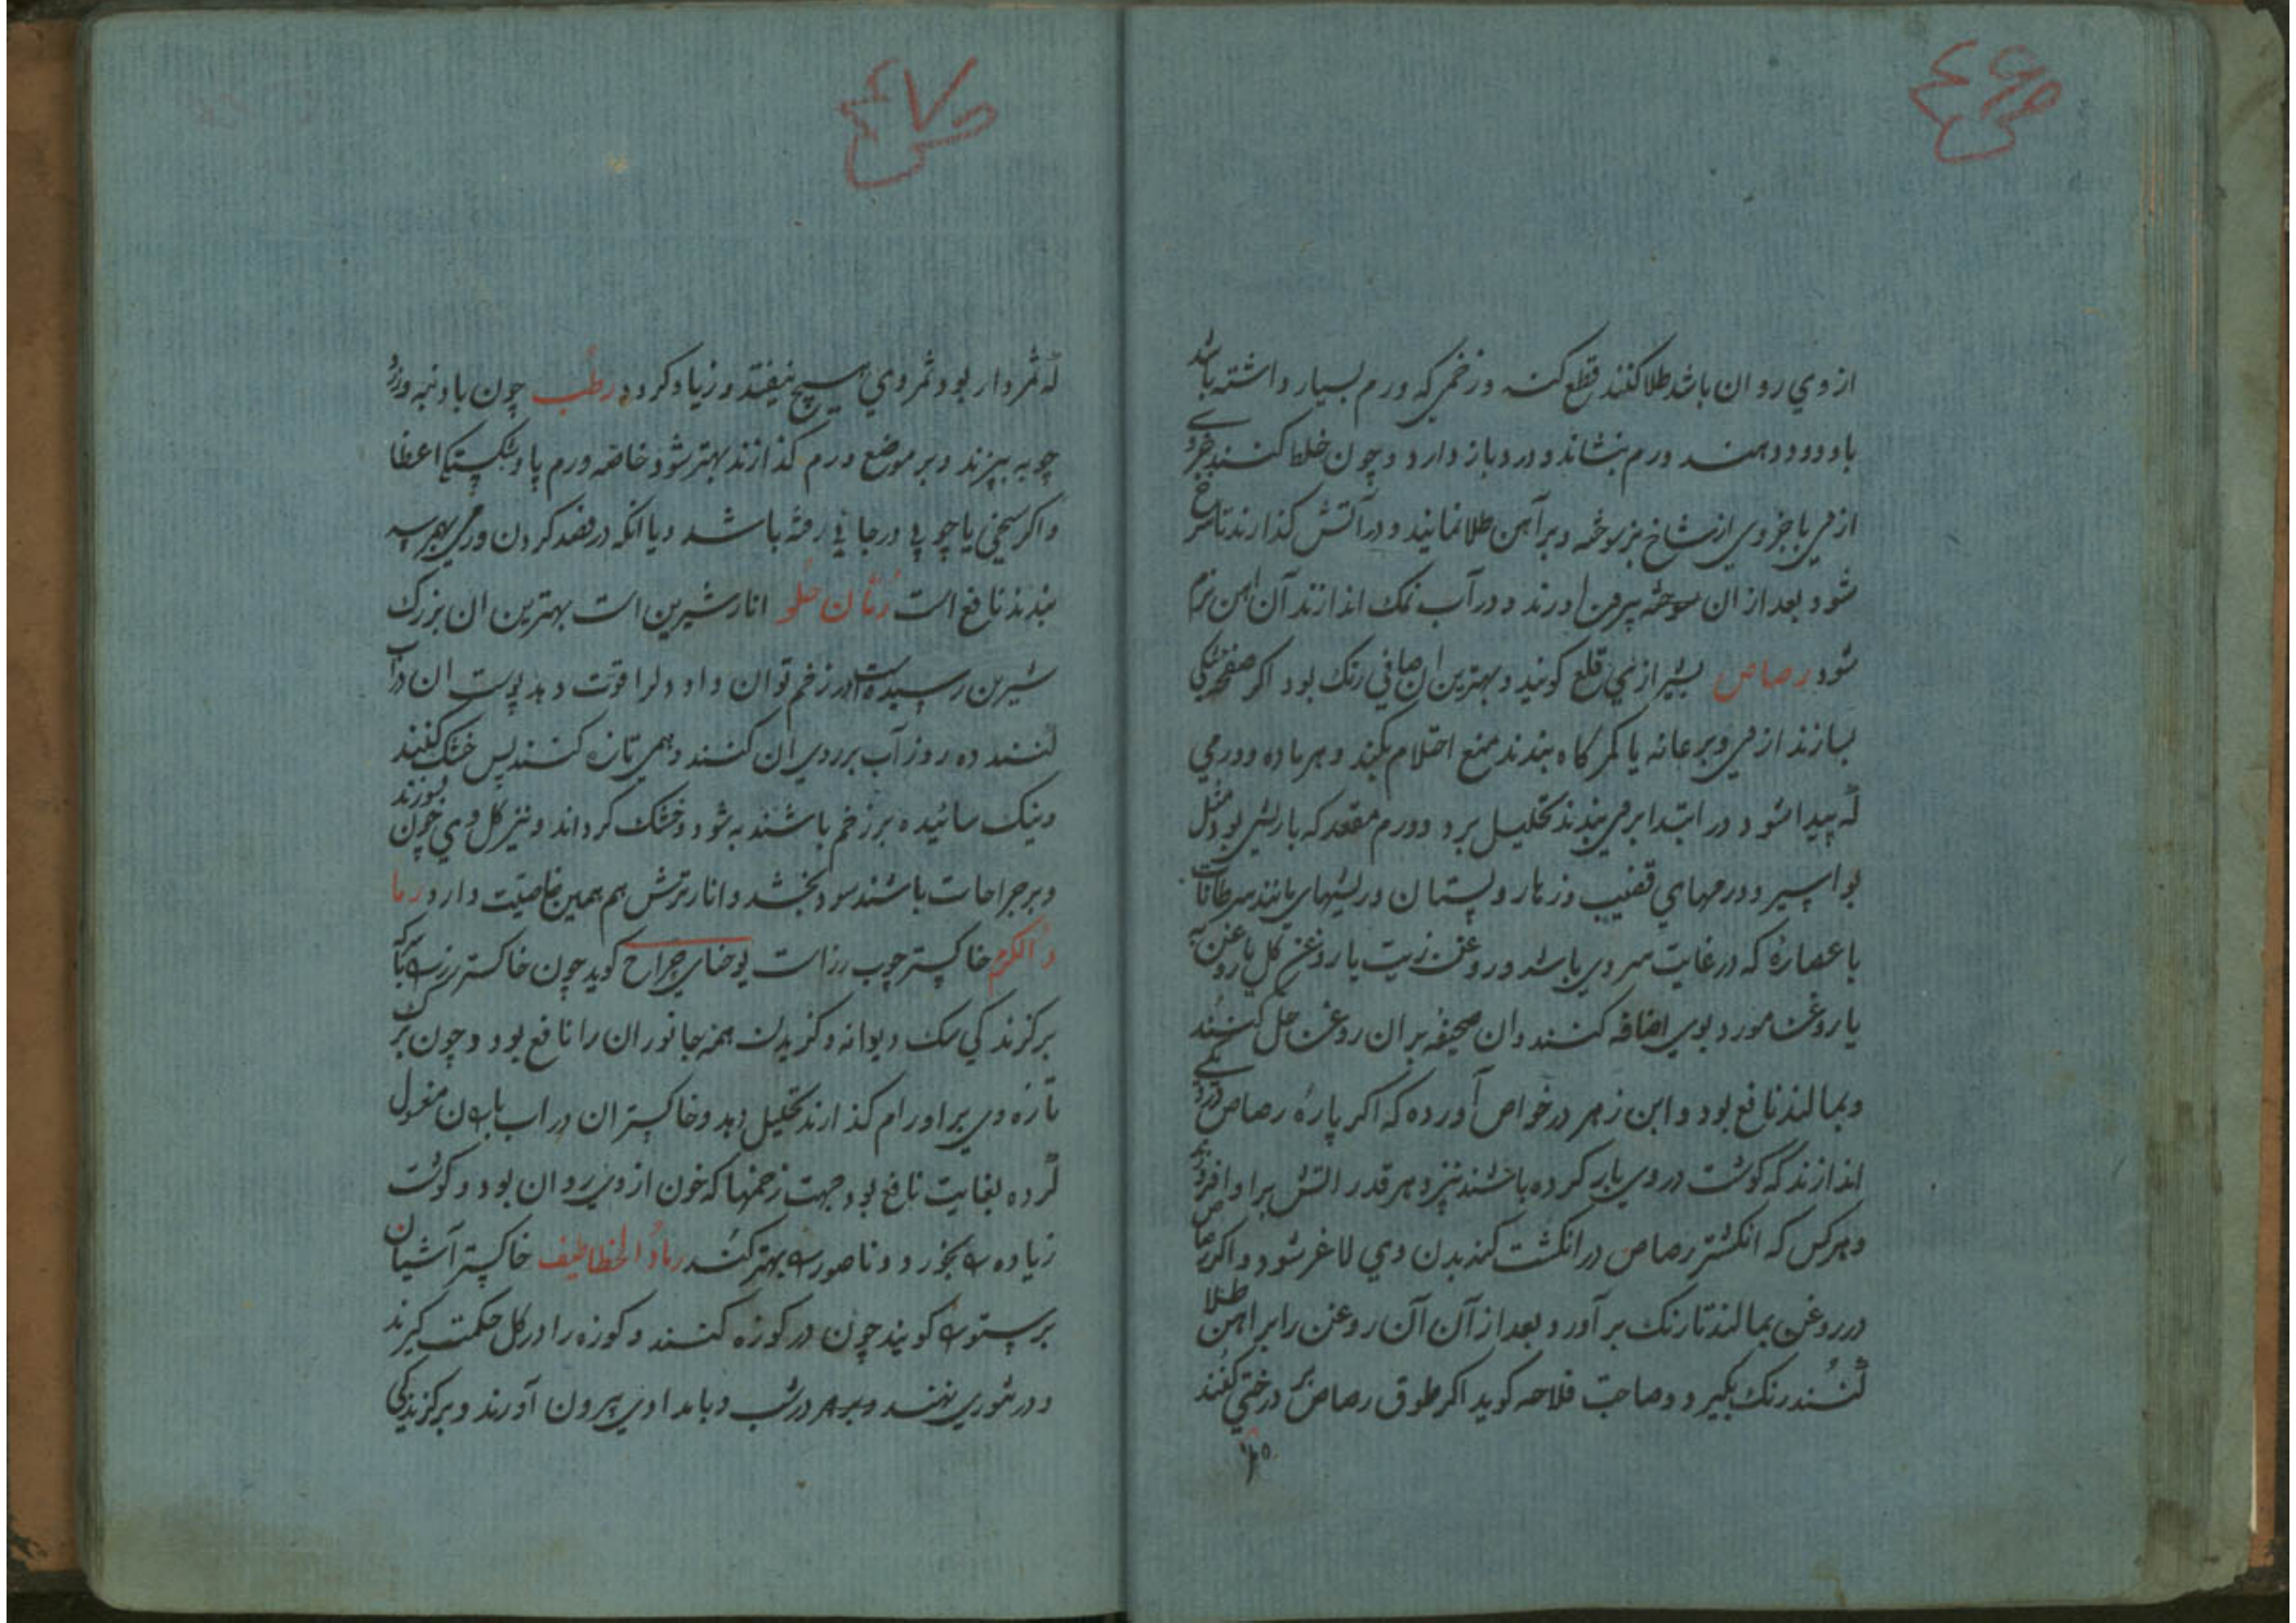 ص ٤٦
از وي روان باشد طلا کنند قطع کند و زخمی که ورم بسیار داشته باشد
باد دود دهند ورم بنشاند و درد باز دارد و چون خلط کنند جزوی
از وی با جزوی از شاخ بز سوخته و بر آهن طلا نمایند و در آتش گذارند تا سرخ
شود بعد از ان بیرون اورند و در آب نمک اندازند آن اهن نرم
شود رصاص بشیرازی قلع کویند و بهترین ان صافی رنک بود اکر صفحه تنکی
بسازند از وی و بر عانه یا کمرکاه بندند منع احتلام بکند و هر ماده و ورمی
که پیدا شود در ابتدا بر وی بندند تحلیل برد و ورم مقعد که با ریش بود مثل
بواسیر و ورمهای قضیب و زهار و پستان و ریشهای مانند سرطانات
با عصارۀ که در غایت سردی باشد و روغن زیت یا روغن کل یا روغن به
یا روغن مورد بوی اضافه کنند و ان صحیفه بر ان روغن حل کنند
و بمالند نافع بود و ابن زهر در خواص آورده که اکر پارۀ رصاص در دیکی
اندازند که کوشت در وی بار کرده باشند نپزد هر قدر اتش برافروزند
و هر کس که انکشتر رصاص در انکشت کند بدن وی لاغر شود و اکر رصاص
در روغن بمالند تا رنک بر آورد و بعد از آن آن روغن را بر اهن طلا
کنند رنک بکیرد و صاحب فلاحه کوید اکر طوق رصاص بر درختی کنند
ص ٤٧
که ثمردار بود ثمر وی هیچ نیفتد و زیاد کردد رطب چون با دنبه و زرد
چوبه بپزند و بر موضع ورم کذارند بهتر شود خاصه ورم پا و شکستکی اعضا
و اکر سیخی یا چوبی در جایی رفته باشد و یا انکه در فصد کردن ورمی بهم رسد
بندند نافع است رمان حلو انار شیرین است بهترین ان بزرک
شیرین رسیده است در زخم توان داد و دلرا قوت دهد پوست ان در آب
کنند ده روز آب بر روی ان کنند و همی تازه کنند پس خشک کنند
و نیک سائیده بر زخم باشند به شود و خشک کرداند و نیز کل وی چون بسوزند
و بر جراحات باشند سود بخشد و انار ترش هم همین خاصیت دارد رما
د الکرم خاکستر چوب رز است بوخنای جراح کوید چون خاکستر رز با سرکه
بر کزندکی سک دیوانه و کزیدن همه جانوران را نافع بود و چون برک
تازه وی بر اورام کذارند تحلیل دهد و خاکستر ان در اب باران مغسول
کرده بغایت نافع بود جهت زخمها که خون از وی روان بود و کوشت
زیاده را بخورد و ناصور را بهتر کند رماد الخطاطیف خاکستر آشیان
پرستوک کویند چون در کوزه کنند و کوزه را در کل حکمت کیرند
و در تنوری نهند در شب و بامداد وی بیرون آورند و بر کزندکی